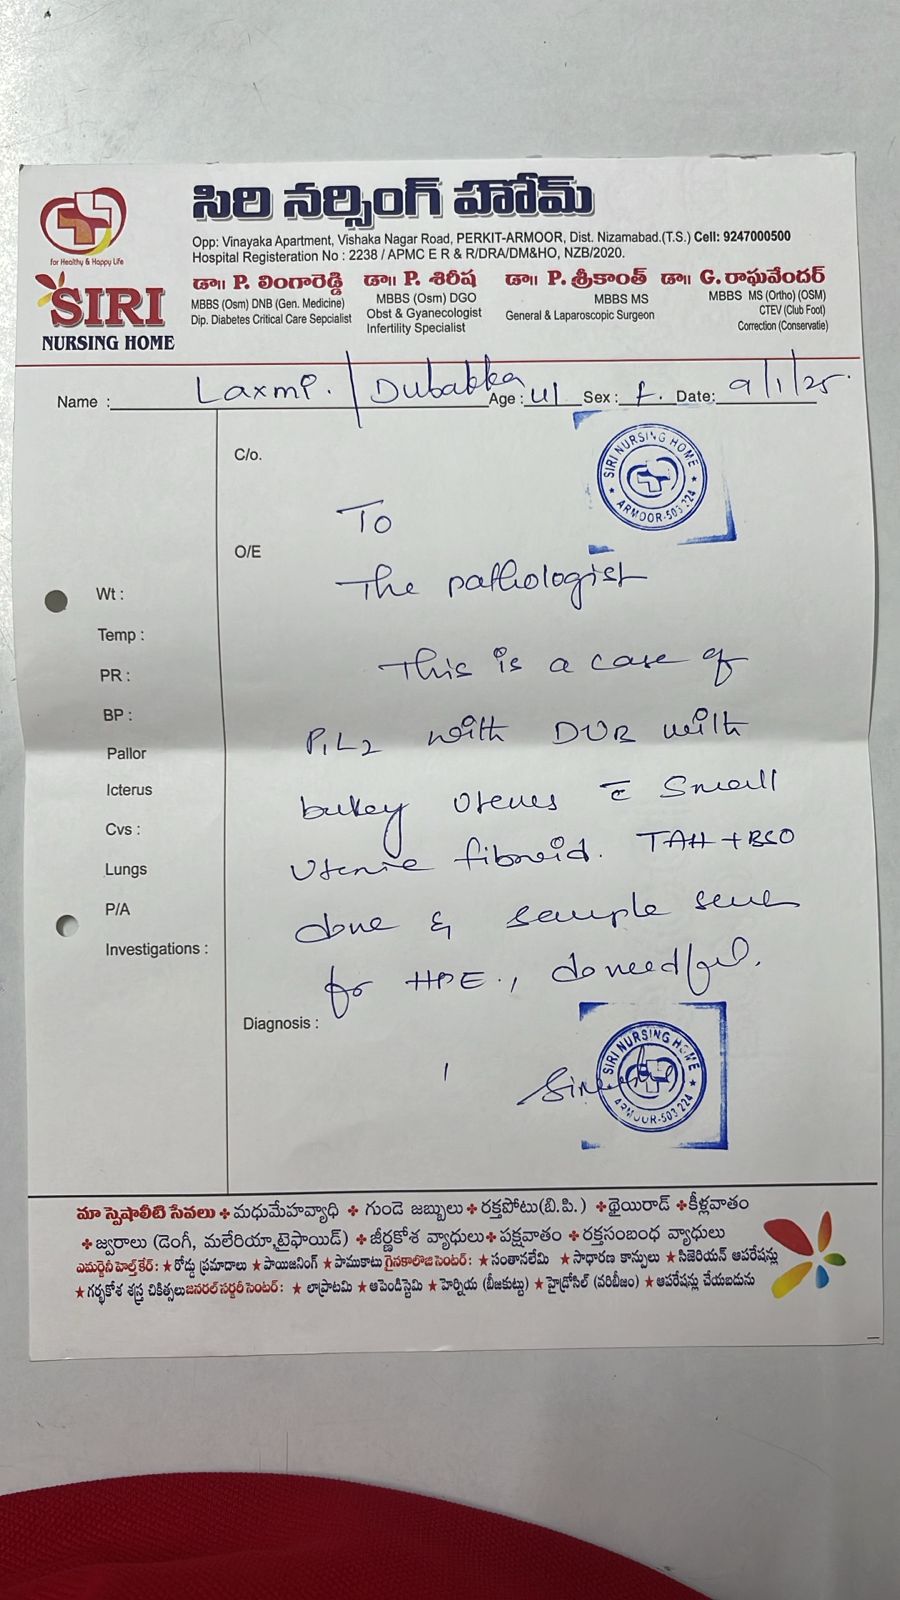 సిరి నర్సింగ్ హోమ్
Opp: Vinayaka Apartment, Vishaka Nagar Road, PERKIT-ARMOOR, Dist. Nizamabad.(T.S.) Cell: 9247000500
Hospital Registeration No : 2238 / APMC E R & R/DRA/DM&HO, NZB/2020.
for Healthy & Happy Life
SIRI
NURSING HOME
డా॥ P. లింగారెడ్డి
MBBS (Osm) DNB (Gen. Medicine)
Dip. Diabetes Critical Care Sepcialist
డా॥ P. శిరీష
MBBS (Osm) DGO
Obst & Gyanecologist
Infertility Specialist
డా॥ P. శ్రీకాంత్
MBBS MS
General & Laparoscopic Surgeon
డా॥ G. రాఘవేందర్
MBBS MS (Ortho) (OSM)
CTEV (Club Foot)
Correction (Conservatie)
Name : Laxmi. / Dubakka Age : Sex : f. Date: 9/1/25.
C/o.
SIRI NURSING HOME
ARMOOR-503 224
To
O/E
The pathologist
Wt :
Temp :
This is a case of
PR :
BP :
P1L2 with DUB with
Pallor
Icterus
bulky uterus c̄ small
Cvs :
uterine fibroid. TAH + BSO
Lungs
P/A
done & sample sent
Investigations :
for HPE., do needful.
Diagnosis :
SIRI NURSING HOME
ARMOOR-503 224
మా స్పెషాలిటీ సేవలు ✤ మధుమేహవ్యాధి ✤ గుండె జబ్బులు ✤ రక్తపోటు(బి.పి.) ✤థైయిరాడ్ ✤కీళ్లవాతం
✤జ్వరాలు (డెంగీ, మలేరియా,టైఫాయిడ్) ✤జీర్ణకోశ వ్యాధులు ✤పక్షవాతం ✤రక్తసంబంధ వ్యాధులు
ఎమర్జెనీ హెల్త్ కేర్: ★ రోడ్డు ప్రమాదాలు ★ పాయిజనింగ్ ★ పాముకాటు గైనకాలొజి సెంటర్: ★సంతానలేమి ★సాధారణ కాన్పులు ★సిజెరియన్ ఆపరేషన్లు
★గర్భకోశ శస్త్ర చికిత్సలు జనరల్ సర్జరీ సెంటర్: ★ లాప్రాటమి ★ఆపెండిస్టెమి ★హెర్నియ (బీజకుట్టు) ★హైడ్రోసిల్ (వరిబీజం) ★ఆపరేషన్లు చేయబడును